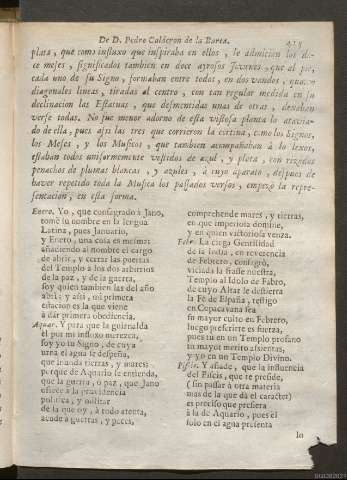 De D. Pedro Calderon de la Barca.
plata, que como influxo que inspiraba en ellos, le admitian los do-
ce meses, significados tambien en doce ayrosos Jovenes, que al pie,
cada uno de su Signo, formaban entre todos, en dos vandos, quatro
diagonales lineas, tiradas al centro, con tan regular medida en su
declinacion las Estatuas, que desmentidas unas de otras, dexaban
verse todas. No fue menor adorno de esta vistosa planta lo atavia-
do de ella, pues asi las tres que corrieron la cortina, como los Signos,
los Meses, y los Musicos, que tambien acompañaban à lo lexos,
estaban todos uniformemente vestidos de azul, y plata, con rizados
penachos de plumas blancas, y azules, à cuyo aparato, despues de
haver repetido toda la Musica los passados versos, empezò la repre-
sentacion, en esta forma.
Enero. Yo, que consagrado à Jano,
tomè su nombre en la lengua
Latina, pues Januario,
y Enero, una cosa es mesma:
añadiendo al nombre el cargo
de abrir, y cerrar las puertas
del Templo à los dos arbitrios
de la paz, y de la guerra,
soy quien tambien las del año
abrì; y asi, mi primera
estacion es la que viene
à dàr primera obediencia.
Aquar. Y para que la guirnalda
el por mi influxo merezca,
soy yo su Signo, de cuya
urna el agua se despeña,
que inunda tierras, y mares;
porque de Aquario se entienda,
que la guerra, ò paz, que Jano
ofrece à la providencia
politica, y militar
de la que oy, à todo atenta,
acude à guerras, y paces,
comprehende mares, y tierras,
en que imperiosa domine,
y en quien victoriosa venza.
Febr. La ciega Gentilidad
de la India, en reverencia
de Febrero, consigrò,
viciada la frasse nuestra,
Templo al Idolo de Fabro,
de cuyo Altar le destierra
la Fè de España, testigo
en Copacavana sea
su mayor culto en Febrero,
luego preferirte es fuerza,
pues tu en un Templo profano
tu mayor merito assientas,
y yo en un Templo Divino.
Piscis. Y añade, que la influencia
del Piscis, que te preside,
( sin passar à otra materia
mas de la que dà el caracter)
es preciso que prefiera
à la de Aquario, pues el
solo en el agua presenta
lo